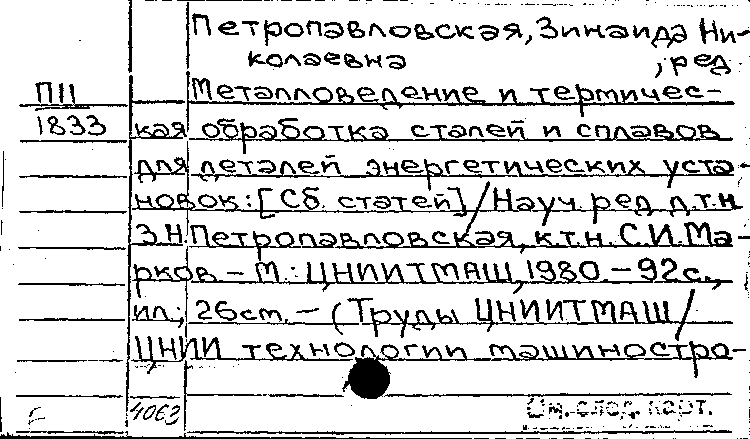 Петропавловская, Зинаида Ни-
колаевна , ред.
П11
Металловедение и термичес-
1833
кая обработка сталей и сплавов
для деталей энергетических уста-
новок: [Сб. статей] / Науч. ред. д.т.н.
З.Н. Петропавловская, к.т.н. С.И. Ма-
рков. - М.: ЦНИИТМАШ, 1980. - 92 с.,
ил.; 26 см. - (Труды ЦНИИТМАШ /
ЦНИИ технологии машиностро-
4063
См. след. карт.